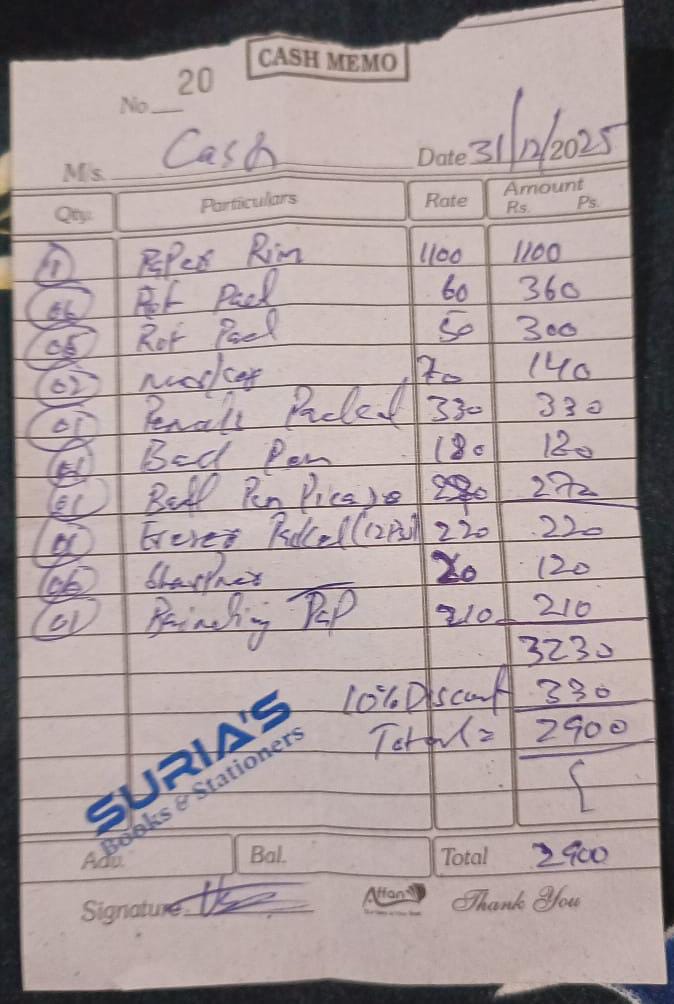 CASH MEMO
No 20
M/s. Cash Date 31/12/2025
Qty. Particulars Rate Amount Rs. Ps.
01 Paper Rim 1100 1100
06 Rof Pad 60 360
05 Rof Pad 50 300
02 Marker 70 140
01 Pencils Packed 330 330
Pen 180 180
01 Ball Pen Picaso 270
01 Packed (12 Ps) 220 220
06 Sharpner 20 120
01 210 210
3230
10% Discount 330
Total = 2900
SURIA'S
Books & Stationers
Adv. Bal. Total 2900
Signature Affan Thank You